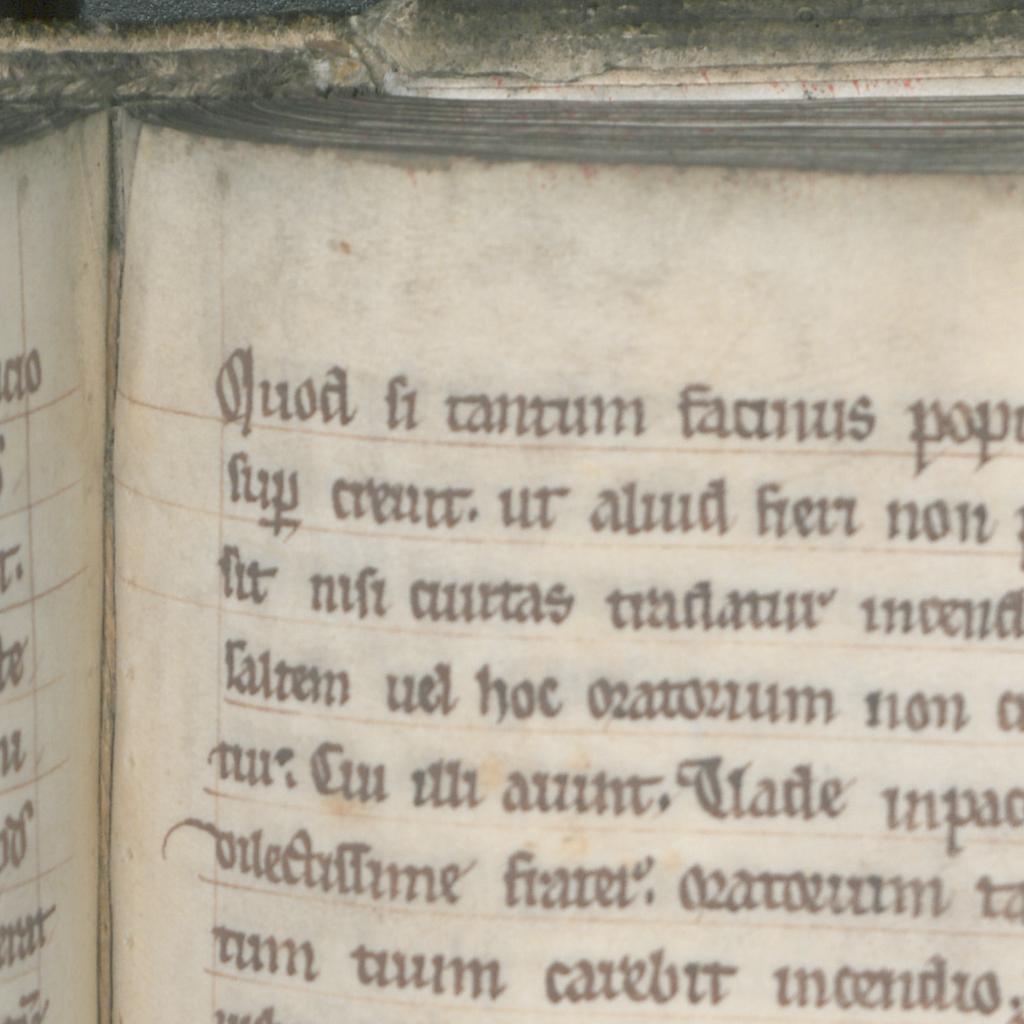 Quod si tantum facinus popu
sup creuit. ut aliud fieri non
sit nisi ciuitas tradatur incend
saltem uel hoc oratorium non
tur. Cui illi aiunt. Uade inpac
dilectissime frater. oratorium ta
tum tuum carebit incendio.